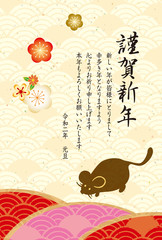 謹賀新年
新しい年が皆様にとりまして
幸多き年となりますよう
心よりお祈り申し上げます
本年もよろしくお願いいたします
令和二年 元旦